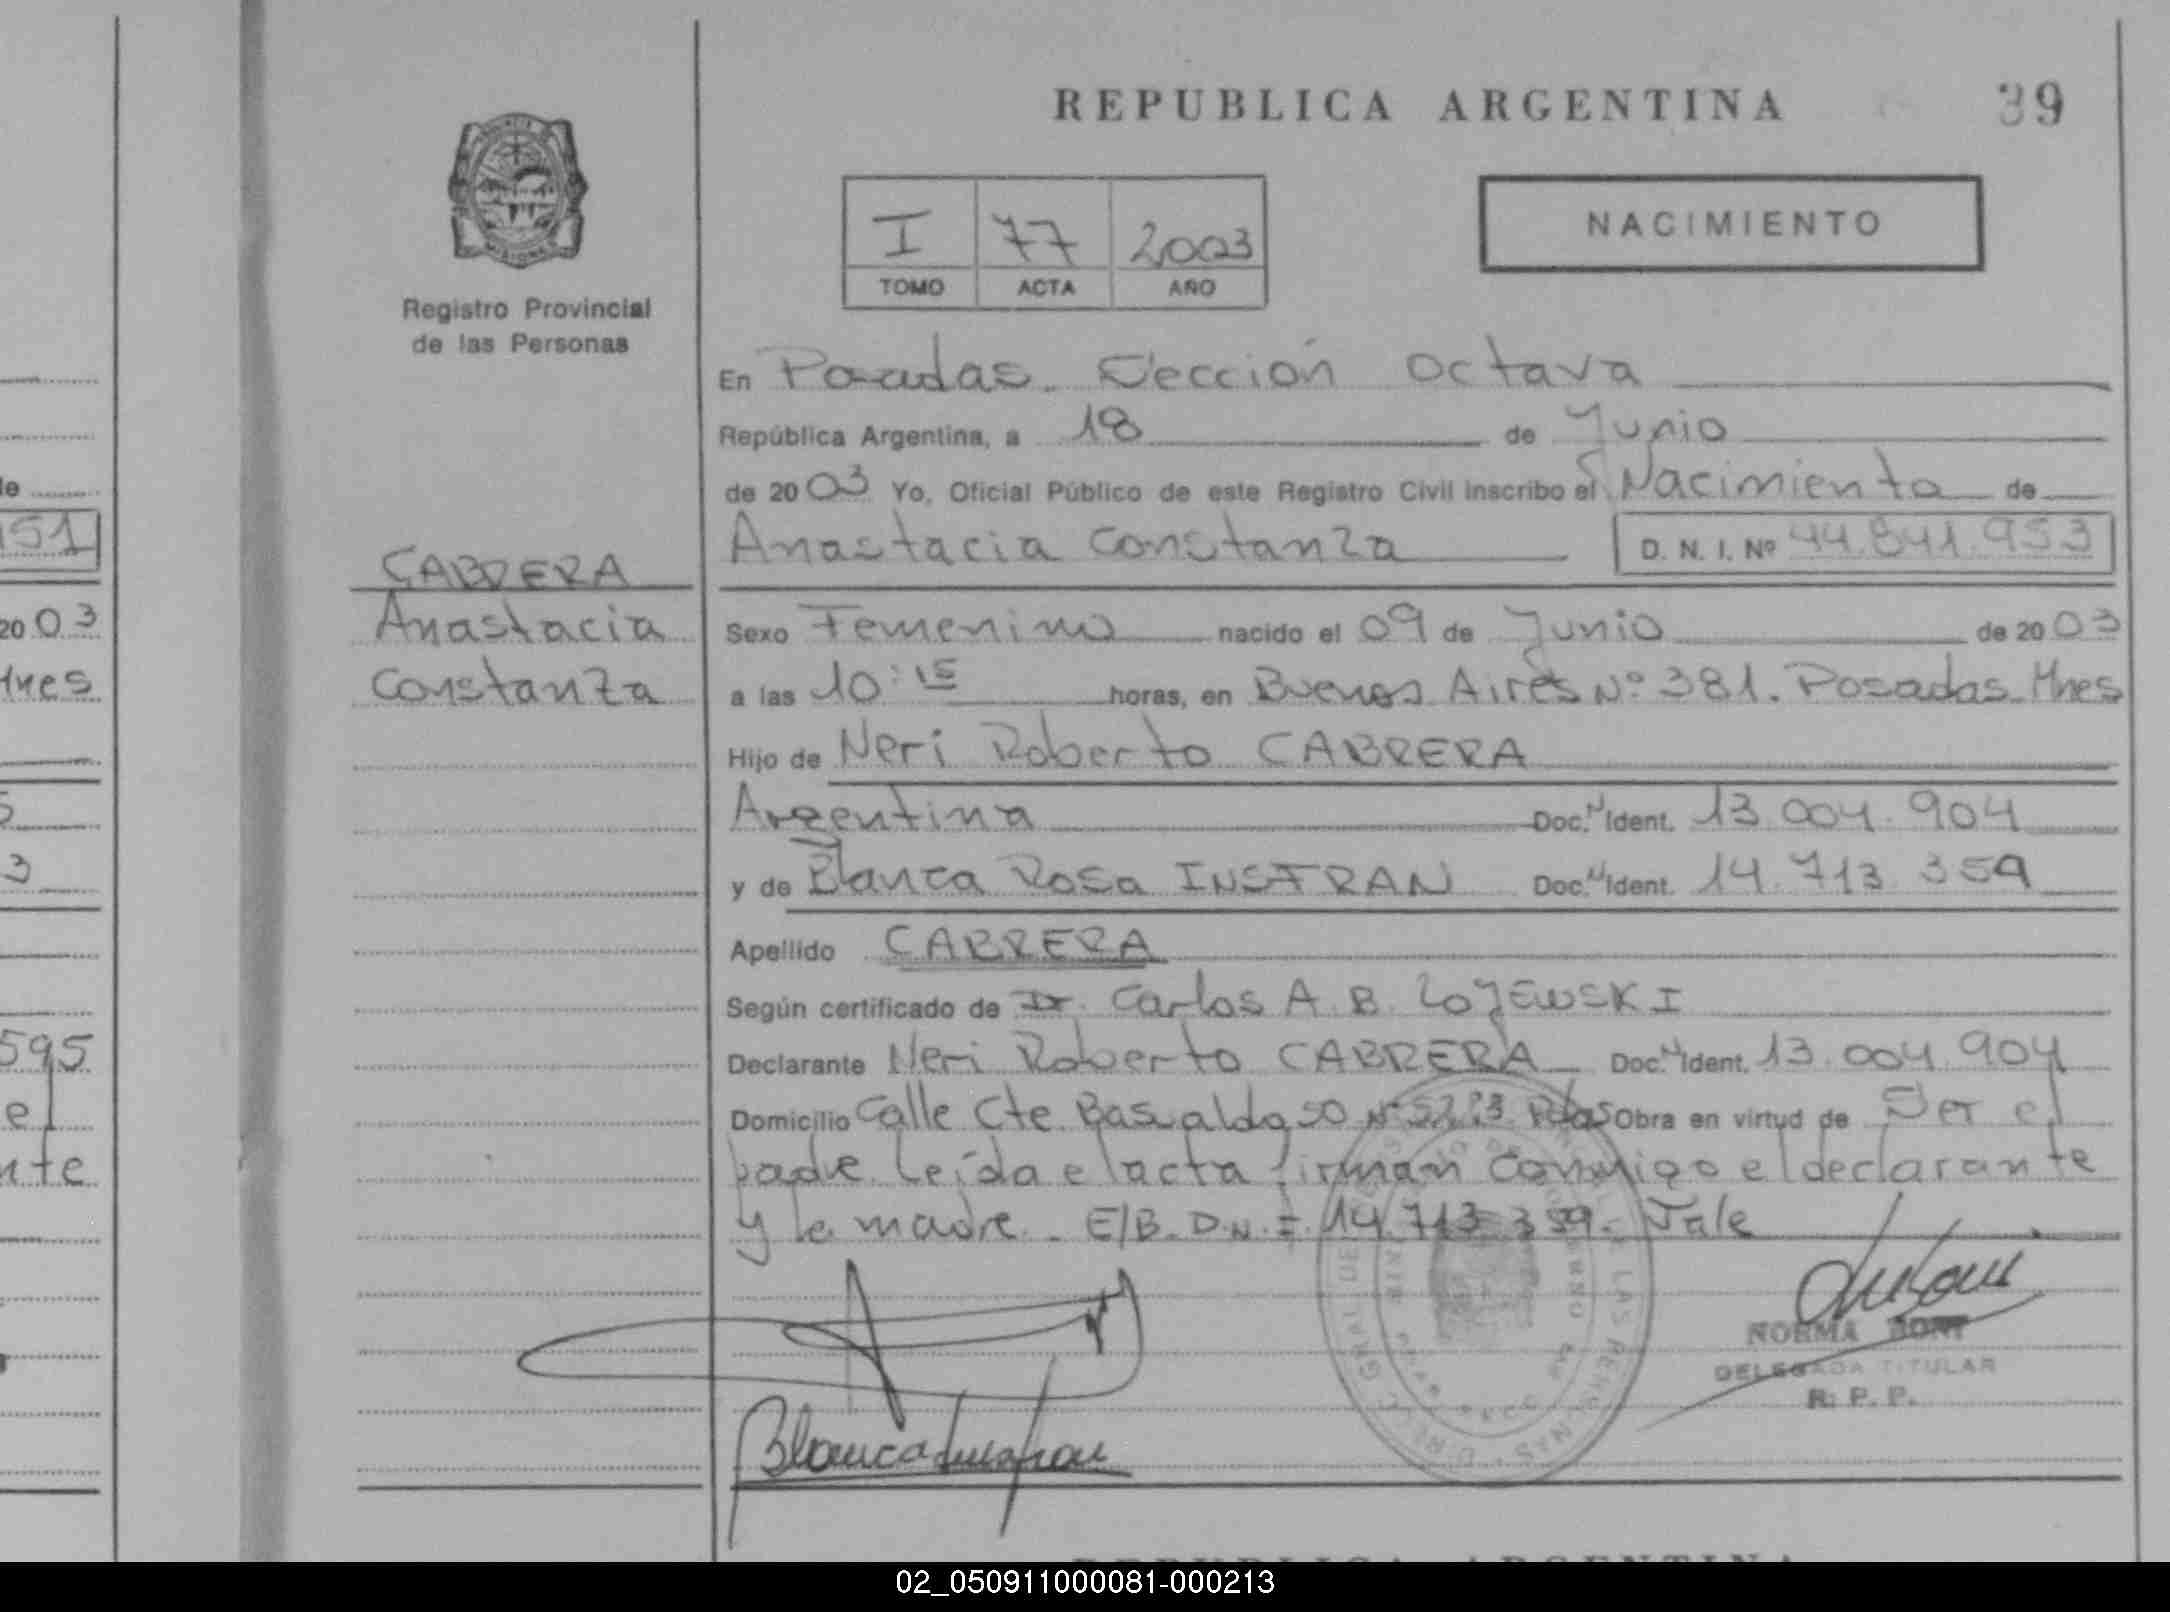 REPUBLICA ARGENTINA
39
I 77 2003
TOMO ACTA AÑO
NACIMIENTO
Registro Provincial
de las Personas
En Posadas. Sección Octava
República Argentina, a 18 de Junio
de 2003 Yo, Oficial Público de este Registro Civil inscribo el Nacimiento de
Anastacia Constanza D. N. I. Nº 44.841.953
CABRERA
Anastacia
Constanza
Sexo Femenino nacido el 09 de Junio de 2003
a las 10:15 horas, en Buenos Aires Nº 381. Posadas. Mnes
Hijo de Neri Roberto CABRERA
Argentina Doc. N Ident. 13.004.904
y de Blanca Rosa INSFRAN Doc. N Ident. 14.713.359
Apellido CABRERA
Según certificado de Dr. Carlos A. B. LOJEWSKI
Declarante Neri Roberto CABRERA Doc. N Ident. 13.004.904
Domicilio Calle Cte. Basualdo Pdas Obra en virtud de Ser el
padre. Leída el acta firman conmigo el declarante
y la madre. E/B. D.N.I. 14.713.359. Vale
NORMA
DELEGADA TITULAR
R. P. P.
Blanca Insfran
951
2003
Mnes
595
el
nte
REPUBLICA ARGENTINA
02_050911000081-000213